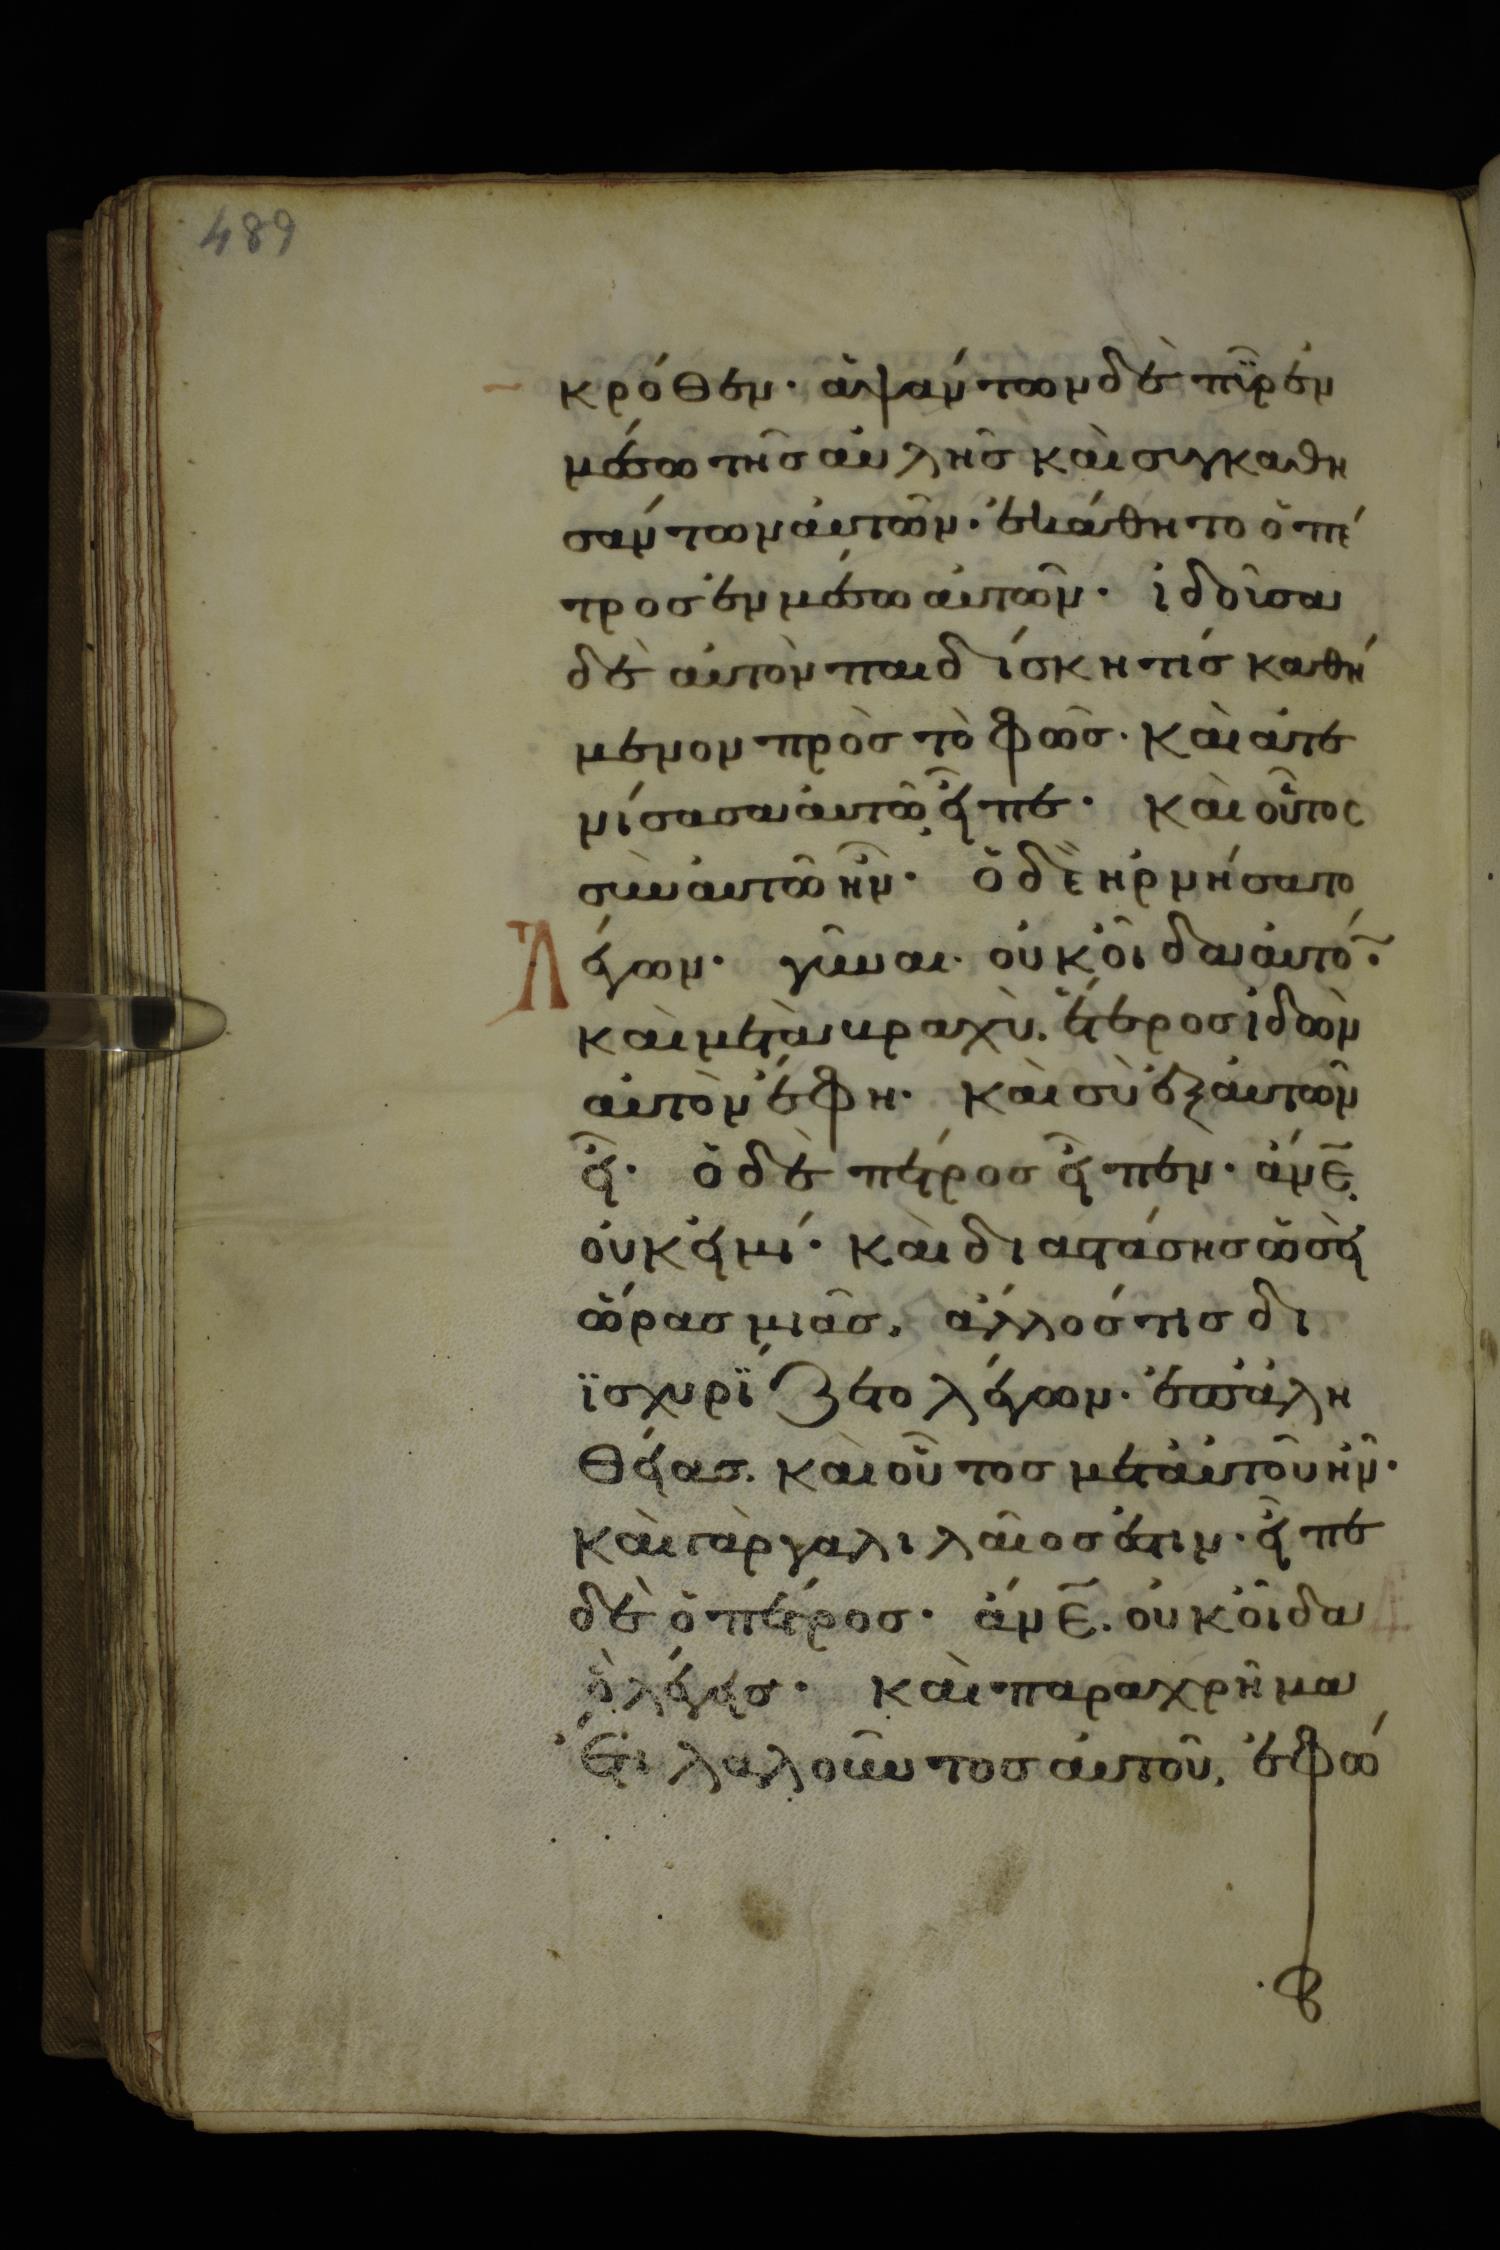 489
κρόθεν· ἁψάντων δὲ πῦρ ἐν
μέσω τῆς αὐλῆς καὶ συγκαθη
σάντων αὐτῶν· ἐκάθητο ὁ πέ
τρος ἐν μέσω αὐτῶν· ἰδοῦσα
δὲ αὐτὸν παιδίσκη τίς καθή
μενον πρὸς τὸ φῶς· καὶ ἀτε
νίσασα αὐτῶ, εἶπε· καὶ οὗτος
σὺν αὐτῶ ἦν· ὁ δὲ ἠρνήσατο
λέγων· γῦναι· οὐκ οἶδα αὐτό̃·
καὶ μετὰ βραχὺ, ἕτερος ἰδὼν
αὐτὸν ἔφη· καὶ σὺ ἐξ αὐτῶν
εἶ· ὁ δὲ πέτρος εἶπεν· ἄνε̅,
οὐκ εἰμί· καὶ διαστάσης ὡσεὶ
ὥρας μιᾶς, ἄλλος τις δι
ϊσχυρΐζετο λέγων· ἐπ' ἀλη
θείας. καὶ οὗτος μετ' αὐτοῦ ἦν·
καὶ γὰρ γαλιλαῖος ἐστιν· εἶπε
δὲ ὁ πέτρος· ἄνε̅. οὐκ οἶδα
ὃ λέγεις· καὶ παραχρῆμα
ἔτι λαλοῦντος αὐτοῦ, ἐφώ